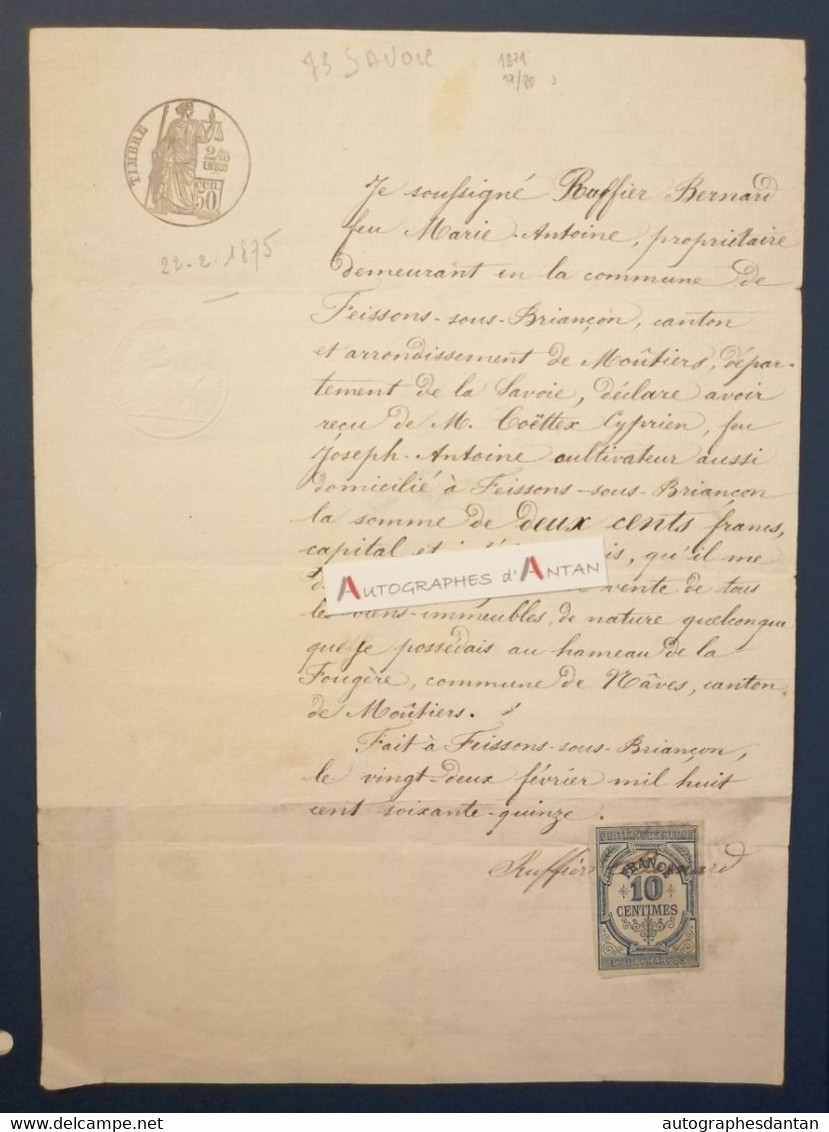 73 SAVOIE
1871
TIMBRE
2/10
EN SUS
50
CEN
22-2-1875
Je soussigné Ruffier Bernard
feu Marie-Antoine, propriétaire
demeurant en la commune de
Feissons-sous-Briançon, canton
et arrondissement de Moûtiers, dépar-
tement de la Savoie, déclare avoir
reçu de M. Coëttex Cyprien, feu
Joseph-Antoine cultivateur aussi
domicilié à Feissons-sous-Briançon
la somme de deux cents francs,
capital et qu'il me
AUTOGRAPHES d'ANTAN
vente de tous
les biens-immeubles, de nature quelconque
que je possédais au hameau de la
Fougère, commune de Nâves, canton
de Moûtiers.
Fait à Feissons-sous-Briançon,
le vingt-deux février mil huit
cent soixante-quinze.
Ruffier
QUITTANCES REÇUS
FRANCE
10
CENTIMES
ET DÉCHARGES
autographesdantan
autographesdantan